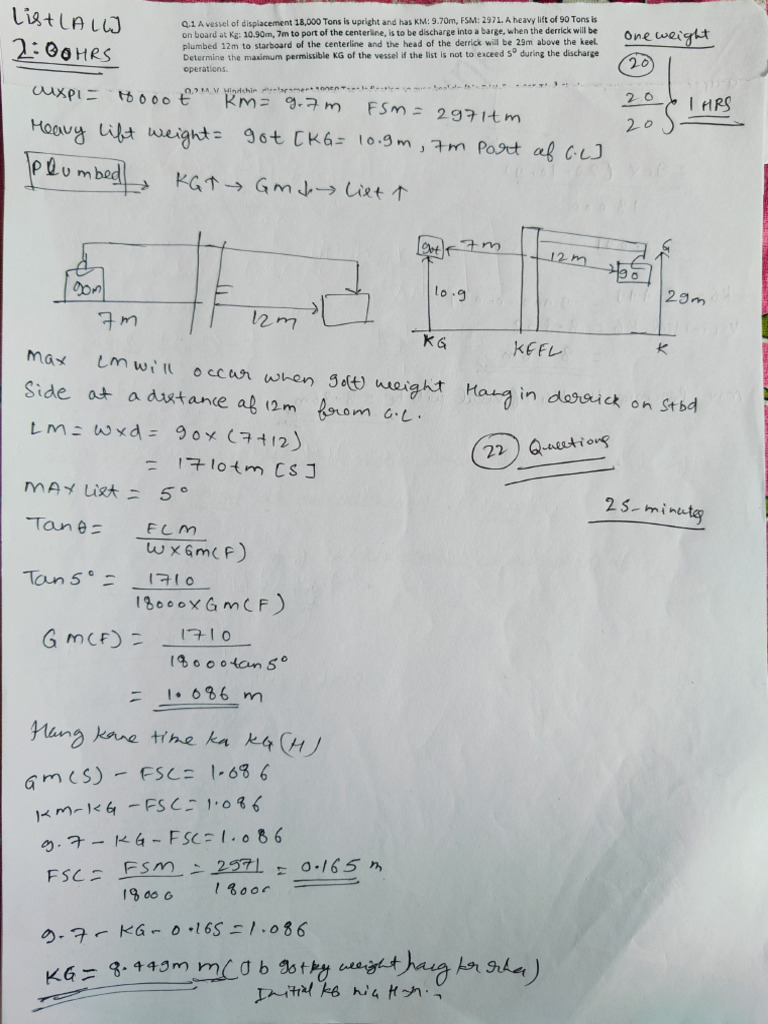 List [ALL]
2:00 HRS
Q.1 A vessel of displacement 18,000 Tons is upright and has KM: 9.70m, FSM: 2971. A heavy lift of 90 Tons is
on board at Kg: 10.90m, 7m to port of the centerline, is to be discharge into a barge, when the derrick will be
plumbed 12m to starboard of the centerline and the head of the derrick will be 29m above the keel.
Determine the maximum permissible KG of the vessel if the list is not to exceed 5° during the discharge
operations.
One weight
20
20
20
1 HRS
Wxpl = 18000t KM = 9.7m FSM = 2971tm
Heavy Lift weight = 90t [KG = 10.9m, 7m Port of C.L]
Plumbed → KG↑ → GM↓ → List ↑
90m
7m
12m
90t
7m
12m
90
G
10.9
29m
KG
KEEL
K
Max LM will occur when 90(t) weight Hang in derrick on stbd
Side at a distance of 12m from C.L.
LM = w x d = 90 x (7+12)
= 1710tm [S]
22 Questions
MAX List = 5°
25-minutes
Tan θ = FLM / W X GM(F)
Tan 5° = 1710 / 18000 X GM(F)
GM(F) = 1710 / 18000 tan 5°
= 1.086 m
Hang karne time ka KG (H)
GM(S) - FSC = 1.086
KM - KG - FSC = 1.086
9.7 - KG - FSC = 1.086
FSC = FSM / 18000 = 2971 / 18000 = 0.165 m
9.7 - KG - 0.165 = 1.086
KG = 8.449m m (Jb 90t kg weight hang kr rha)
Initial KG